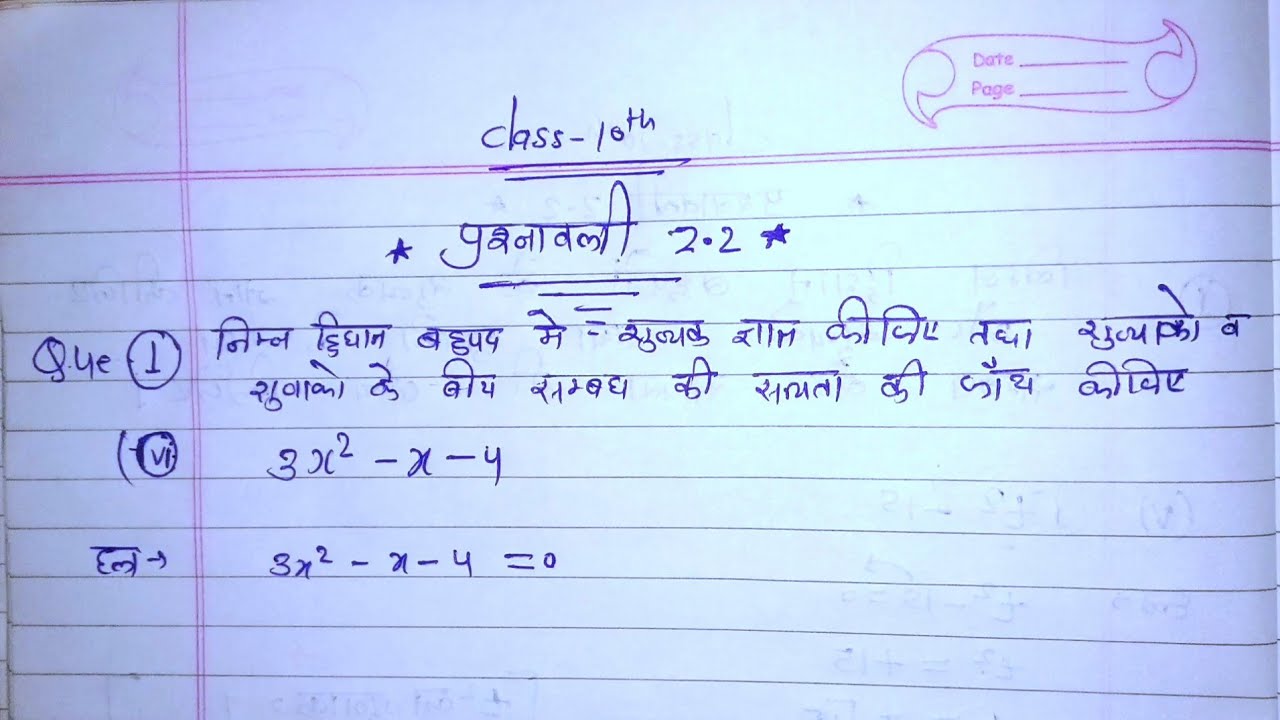 Date
Page
Class-10th
* प्रश्नावली 2.2 *
Que (1) निम्न द्विघात बहुपद मे शुन्यक ज्ञात कीजिए तथा शुन्याको व
के बीच सम्बध की सत्यता की जाँच कीजिए
(vi) 3x² - x - 4
हल → 3x² - x - 4 = 0